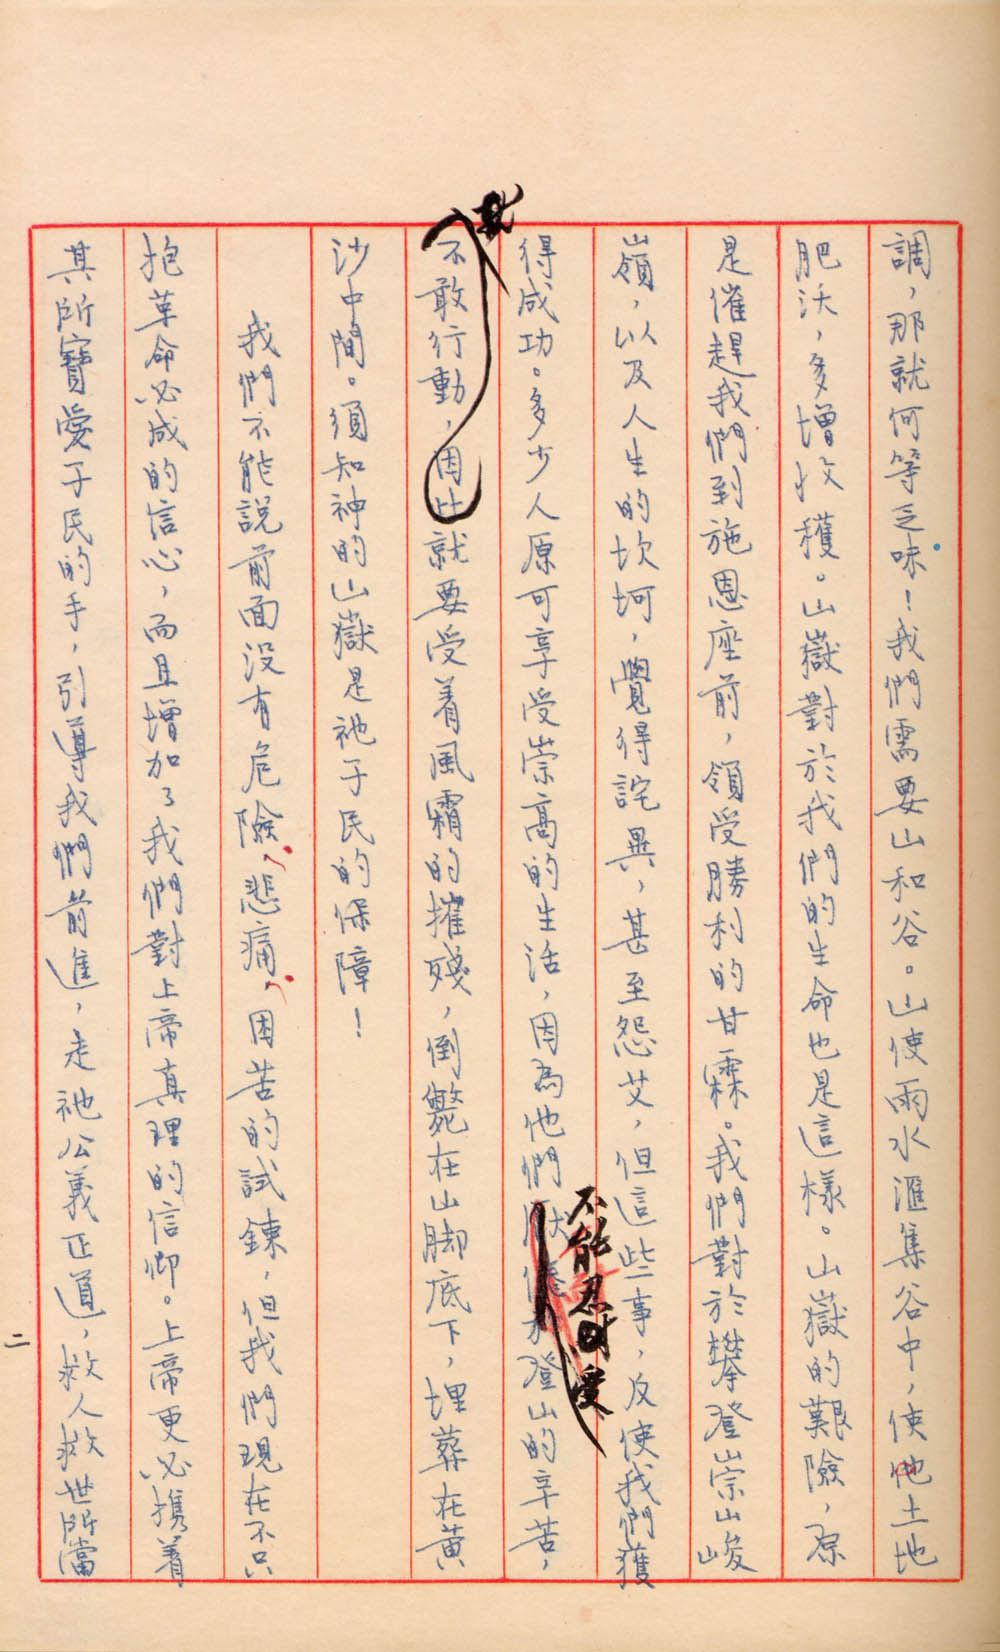 調，那就何等乏味！我們需要山和谷。山使雨水滙集谷中，使他土地
肥沃，多增收穫。山嶽對於我們的生命也是這樣。山嶽的艱險，原
是催趕我們到施恩座前，領受勝利的甘霖。我們對於攀登崇山峻
嶺，以及人生的坎坷，覺得詫異，甚至怨艾，但這些事，反使我們獲
不能忍受
得成功。多少人原可享受崇高的生活，因為他們登山的辛苦，
就
不敢行動，因此就要受着風霜的摧殘，倒斃在山脚底下，埋葬在黃
沙中間。須知神的山嶽是祂子民的保障！
我們不能說前面没有危險、悲痛、困苦的試鍊，但我們現在不只
抱革命必成的信心，而且增加了我們對上帝真理的信仰。上帝更必携着
其所寶愛子民的手，引導我們前進，走祂公義正道，救人救世所當
二